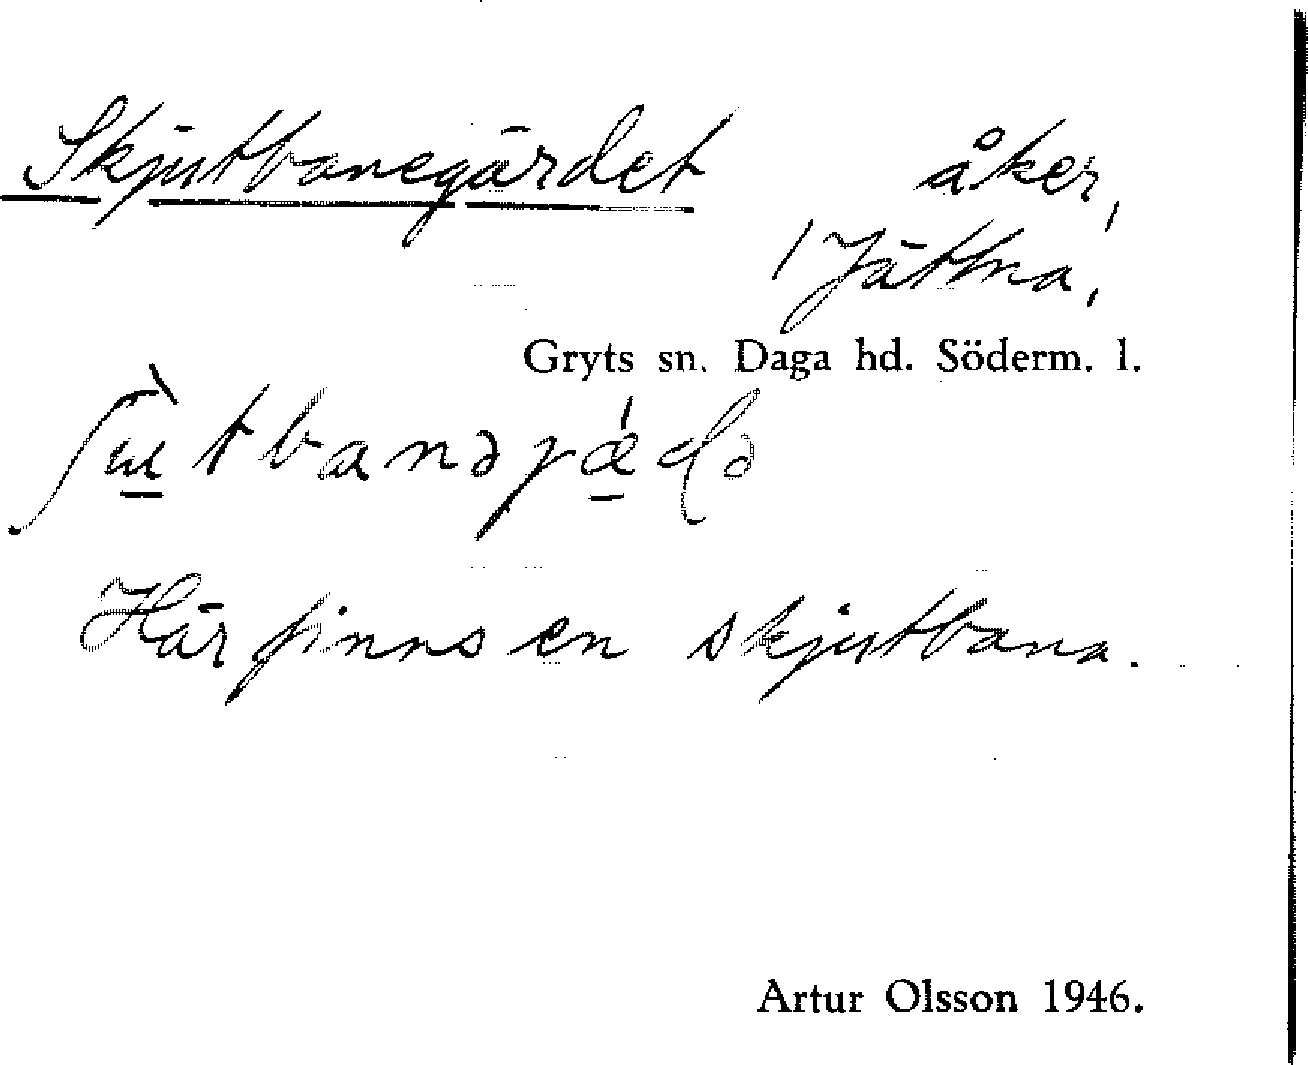 Skjutbanegärdet åker,
1 Jättna,
Gryts sn. Daga hd. Söderm. l.
Här finns en skjutbana.
Artur Olsson 1946.